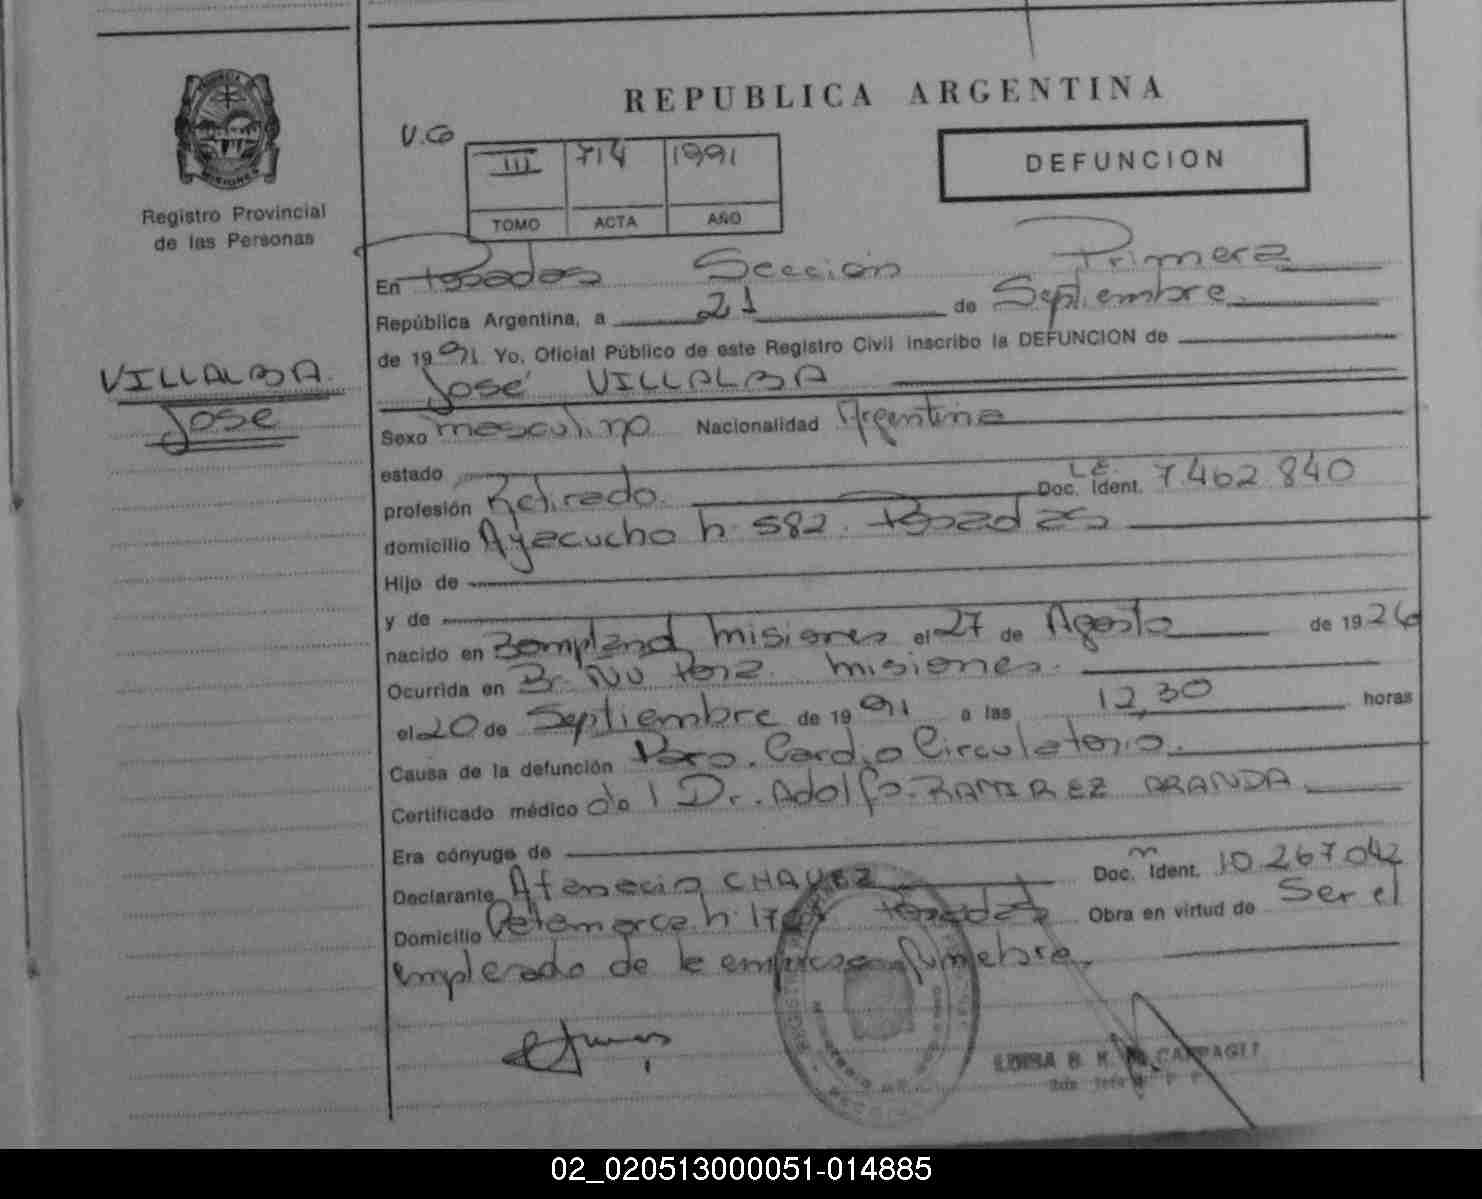 REPUBLICA ARGENTINA
Registro Provincial
de las Personas
III 714 1991
TOMO ACTA AÑO
DEFUNCION
En Posadas Sección Primera
República Argentina, a 21 de Septiembre
de 1991 Yo, Oficial Público de este Registro Civil inscribo la DEFUNCION de
José VILLALBA
VILLALBA
José
Sexo masculino Nacionalidad Argentina
estado
profesión Retirado. L.E. Doc. Ident. 7.462.840
domicilio Ayacucho n. 582. Posadas
Hijo de
y de
nacido en Bompland Misiones el 27 de Agosto de 1926
Ocurrida en Misiones.
el 20 de Septiembre de 1991 a las 12,30 horas
Causa de la defunción Paro Cardio Circulatorio.
Certificado médico del Dr. Adolfo RAMIREZ ARANDA
Era cónyuge de
Declarante Atanacio CHAVEZ Doc. Ident. 10.267.042
Domicilio Posadas Obra en virtud de Ser el
empleado de la empresa funebre.
02_020513000051-014885